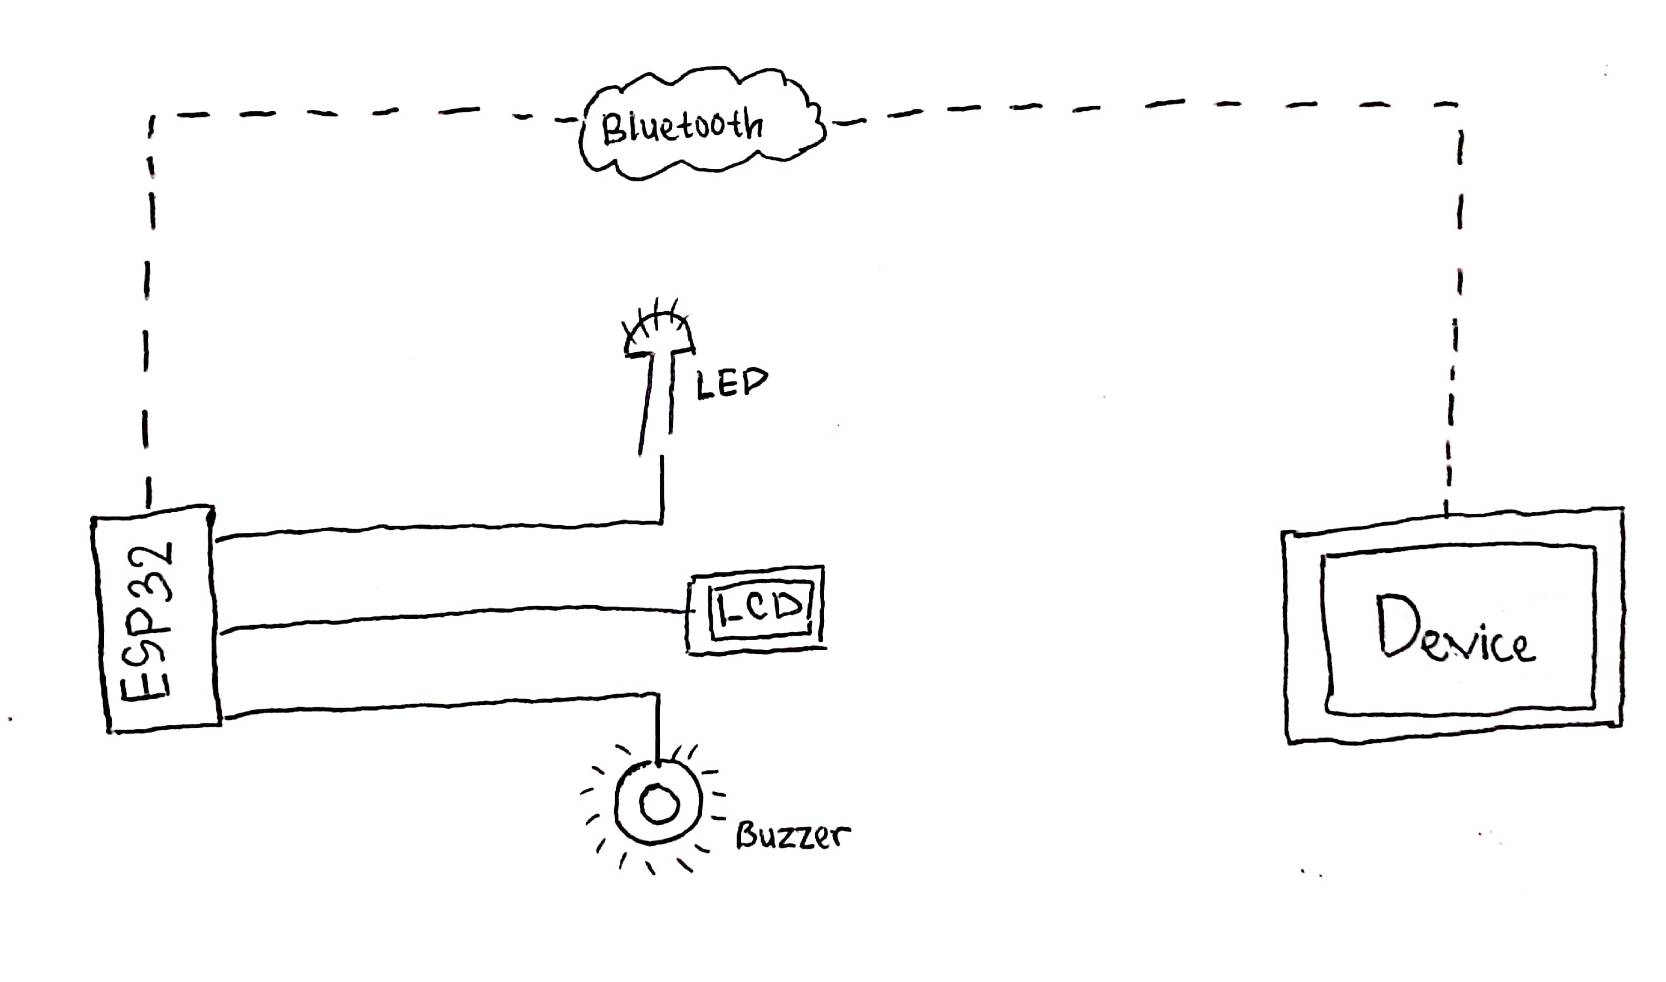 Bluetooth
LED
ESP32
LCD
Device
Buzzer